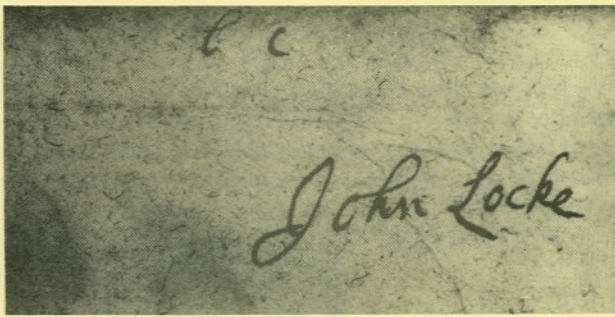 l c
John Locke